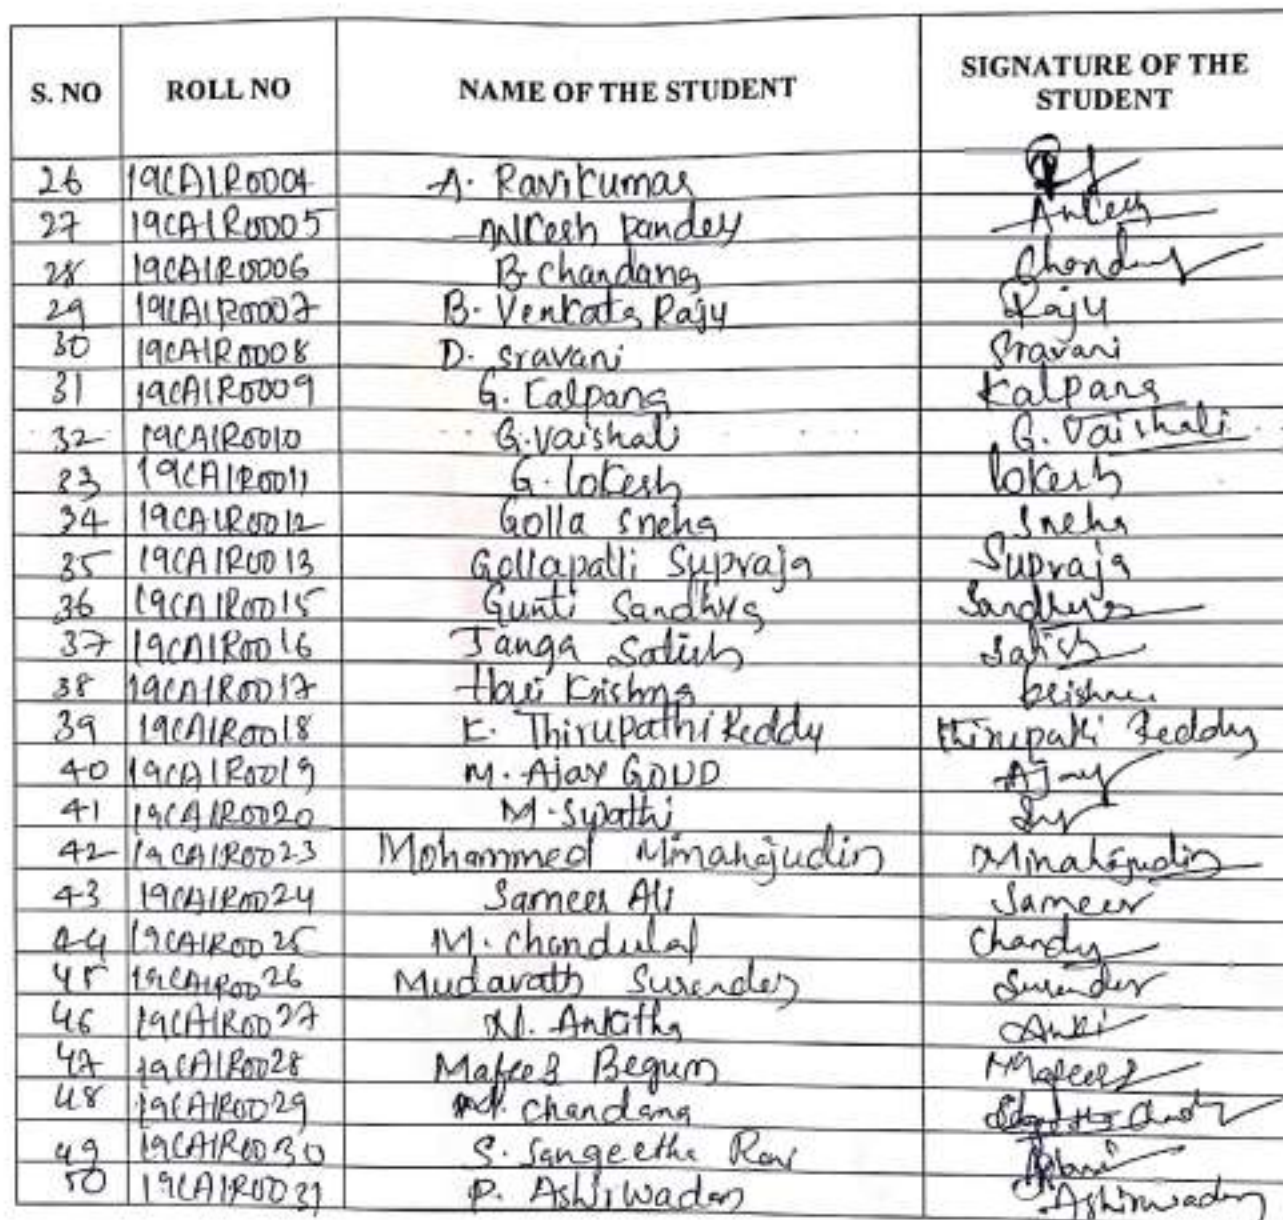 S. NO ROLL NO NAME OF THE STUDENT SIGNATURE OF THE STUDENT
26 19CA1R0004 A. Ravikumar
27 19CA1R0005 Ankesh Pandey Ankesh
28 19CA1R0006 B. chandana
29 19CA1R0007 B. Venkata Raju Raju
30 19CA1R0008 D. sravani Sravani
31 19CA1R0009 G. Kalpana Kalpana
32 19CA1R0010 G. vaishali G. Vaishali
33 19CA1R0011 G. lokesh lokesh
34 19CA1R0012 Golla sneha sneha
35 19CA1R0013 Gollapalli Supraja Supraja
36 19CA1R0015 Gunti Sandhya Sandhya
37 19CA1R0016 Janga Satish Satish
38 19CA1R0017 Hari Krishna krishna
39 19CA1R0018 K. Thirupathi Reddy Thirupathi Reddy
40 19CA1R0019 M. Ajay GOUD Ajay
41 19CA1R0020 M. Swathi
42 19CA1R0023 Mohammed Minahajudin Minahajudin
43 19CA1R0024 Sameer Ali Sameer
44 19CA1R0025 M. chandulal Chandu
45 19CA1R0026 Mudavath Surender Surender
46 19CA1R0027 N. Ankitha Anki
47 19CA1R0028 Nafees Begum Nafees
48 19CA1R0029 chandana
49 19CA1R0030 S. Sangeetha Rani Rani
50 19CA1R0031 P. Ashirwadam Ashirwadam